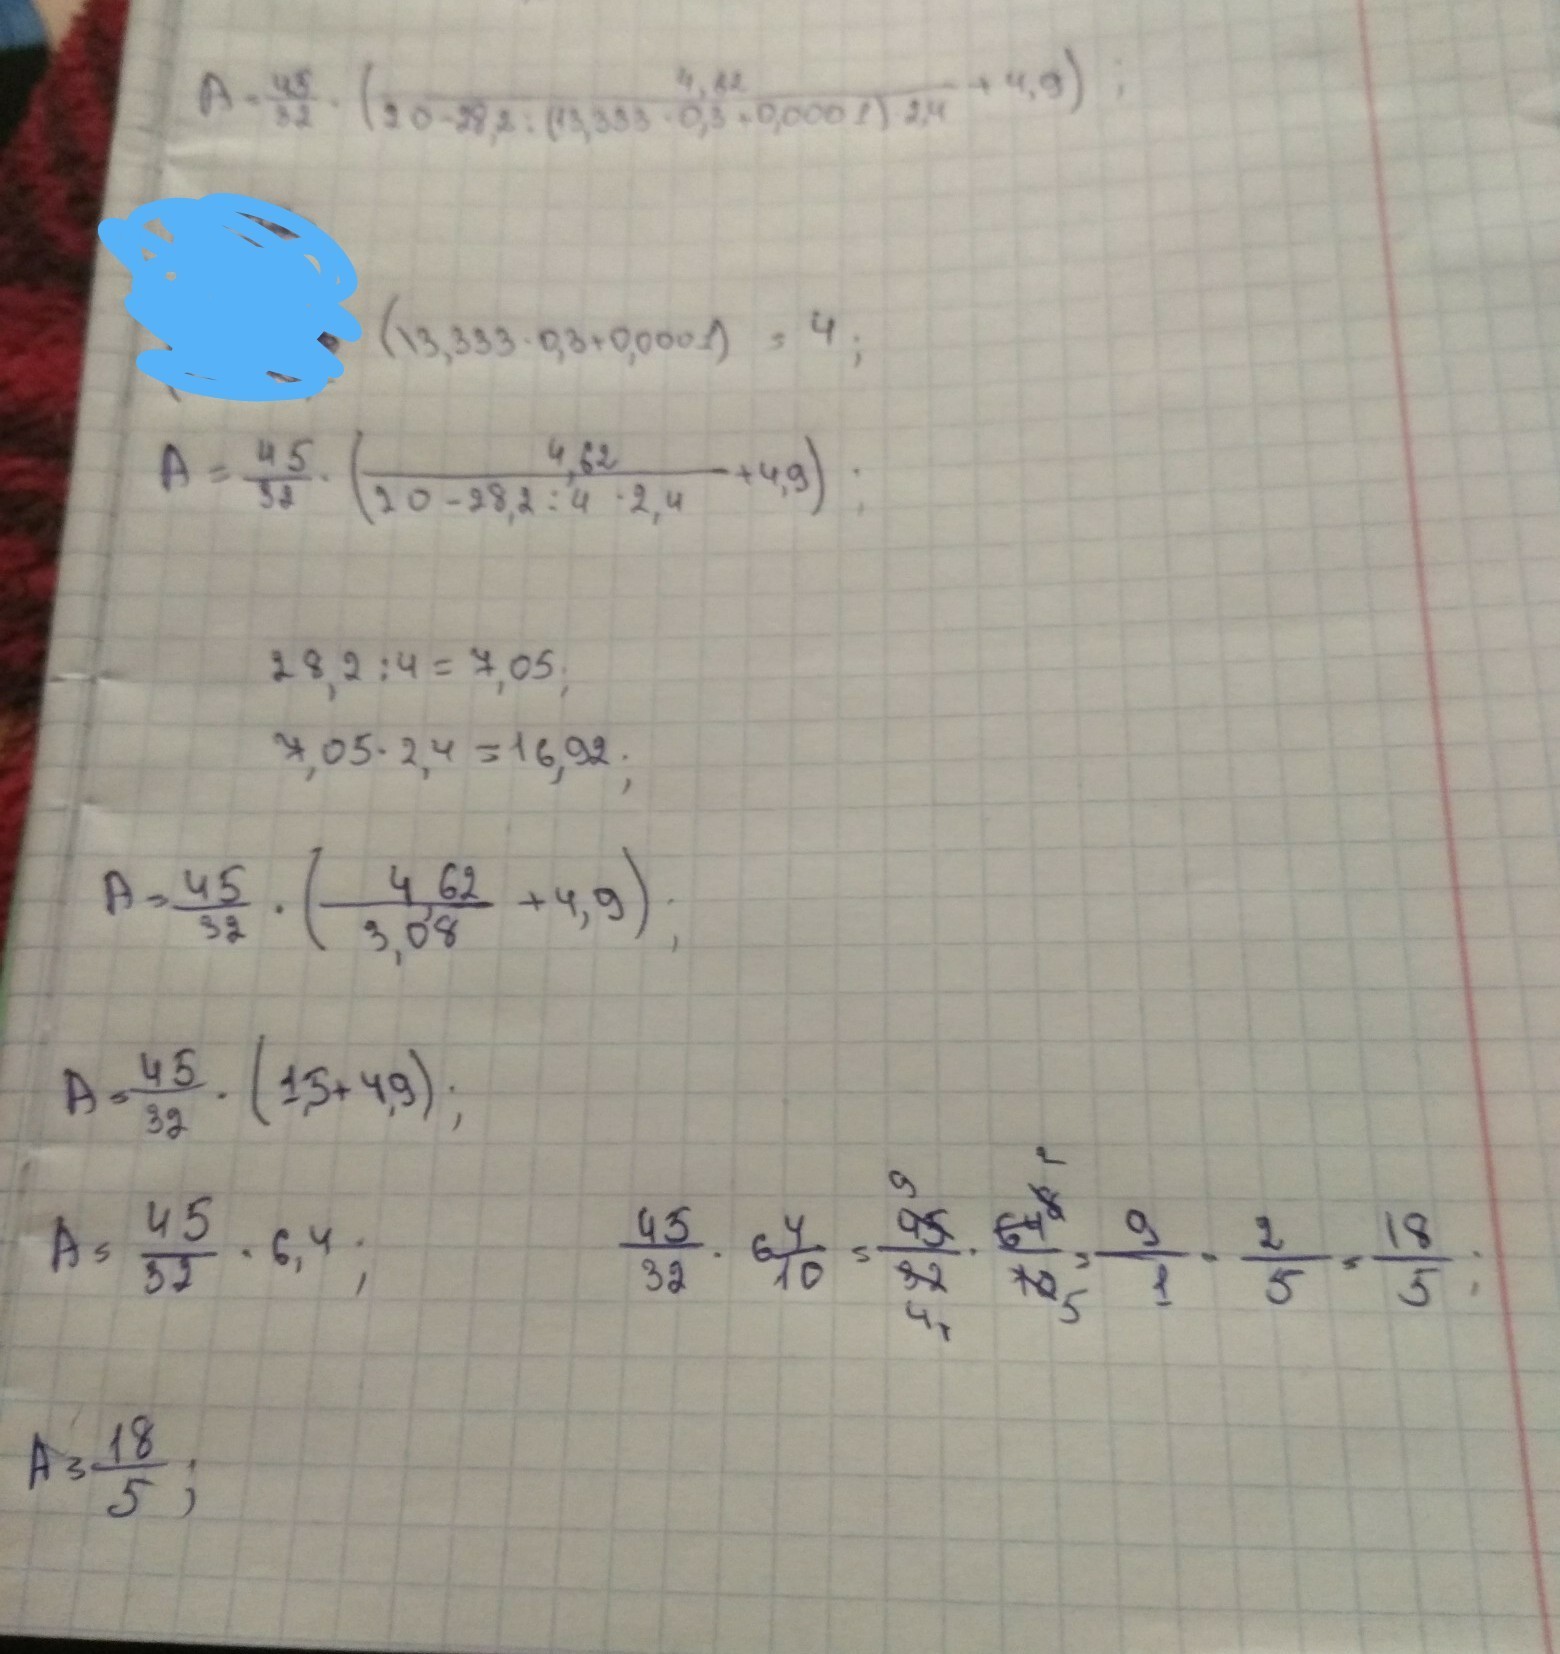 A = 45/32 · (4,62/(20 - 28,2 : (13,333 · 0,3 + 0,0001) · 2,4) + 4,9) ;
(13,333 · 0,3 + 0,0001) = 4 ;
A = 45/32 · (4,62/(20 - 28,2 : 4 · 2,4) + 4,9) ;
28,2 : 4 = 7,05 ;
7,05 · 2,4 = 16,92 ;
A = 45/32 · (4,62/3,08 + 4,9) ;
A = 45/32 · (1,5 + 4,9) ;
A = 45/32 · 6,4 ; 45/32 · 6 4/10 = 45/32 · 64/10 = 9/1 · 2/5 = 18/5 ;
A = 18/5 ;